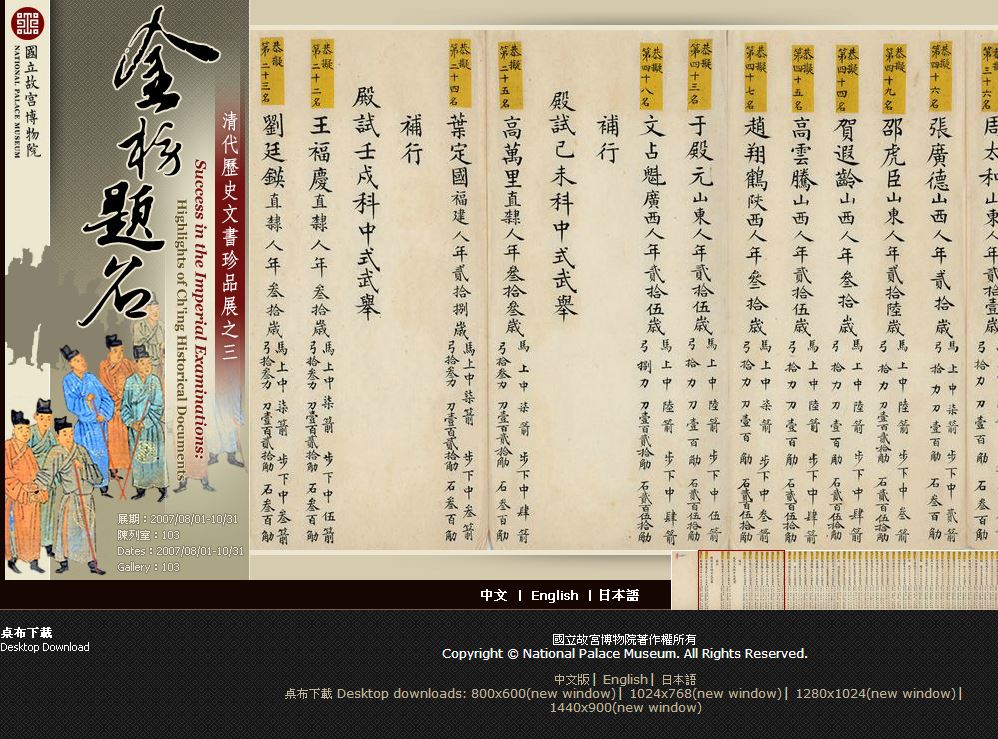 國立故宮博物院
NATIONAL PALACE MUSEUM
金榜題名
清代歷史文書珍品展之三
Success in the Imperial Examinations:
Highlights of Ch'ing Historical Documents
展期：2007/08/01-10/31
陳列室：103
Dates：2007/08/01-10/31
Gallery：103
第三十六名
太和山東人年貳拾壹歲
恭擬第四十六名
張廣德山西人年貳拾歲
馬上中陸箭 步下中貳箭
弓拾力 刀壹百觔 石貳百伍拾觔
恭擬第四十九名
邵虎臣山東人年貳拾陸歲
馬上中陸箭 步下中叁箭
弓拾力 刀壹百貳拾觔 石貳百伍拾觔
恭擬第四十四名
賀遐齡山西人年叁拾歲
馬上中陸箭 步下中肆箭
弓拾力 刀壹百觔 石貳百伍拾觔
恭擬第四十五名
高雲騰山西人年貳拾伍歲
馬上中陸箭 步下中肆箭
弓拾力 刀壹百貳拾觔 石貳百伍拾觔
恭擬第四十七名
趙翔鶴陝西人年叁拾歲
馬上中柒箭 步下中叁箭
弓拾力 刀壹百觔 石貳百伍拾觔
恭擬第四十三名
于殿元山東人年貳拾伍歲
馬上中陸箭 步下中伍箭
弓拾力 刀壹百觔 石貳百伍拾觔
恭擬第四十八名
文占魁廣西人年貳拾伍歲
馬上中陸箭 步下中肆箭
弓捌力 刀壹百貳拾觔 石貳百伍拾觔
補行
殿試己未科中式武舉
恭擬第二十五名
高萬里直隸人年叁拾叁歲
馬上中柒箭 步下中肆箭
弓拾叁力 刀壹百貳拾觔 石叁百觔
恭擬第二十四名
葉定國福建人年貳拾捌歲
馬上中柒箭 步下中叁箭
弓拾叁力 刀壹百貳拾觔 石叁百觔
補行
殿試壬戌科中式武舉
恭擬第二十二名
王福慶直隸人年叁拾歲
馬上中柒箭 步下中伍箭
弓拾叁力 刀壹百貳拾觔 石叁百觔
恭擬第二十三名
劉廷鍈直隸人年叁拾歲
馬上中柒箭 步下中叁箭
弓拾叁力 刀壹百貳拾觔 石叁百觔
中文 | English | 日本語
桌布下載
Desktop Download
國立故宮博物院著作權所有
Copyright © National Palace Museum. All Rights Reserved.
中文版| English| 日本語
桌布下載 Desktop downloads: 800x600(new window)| 1024x768(new window)| 1280x1024(new window)|
1440x900(new window)